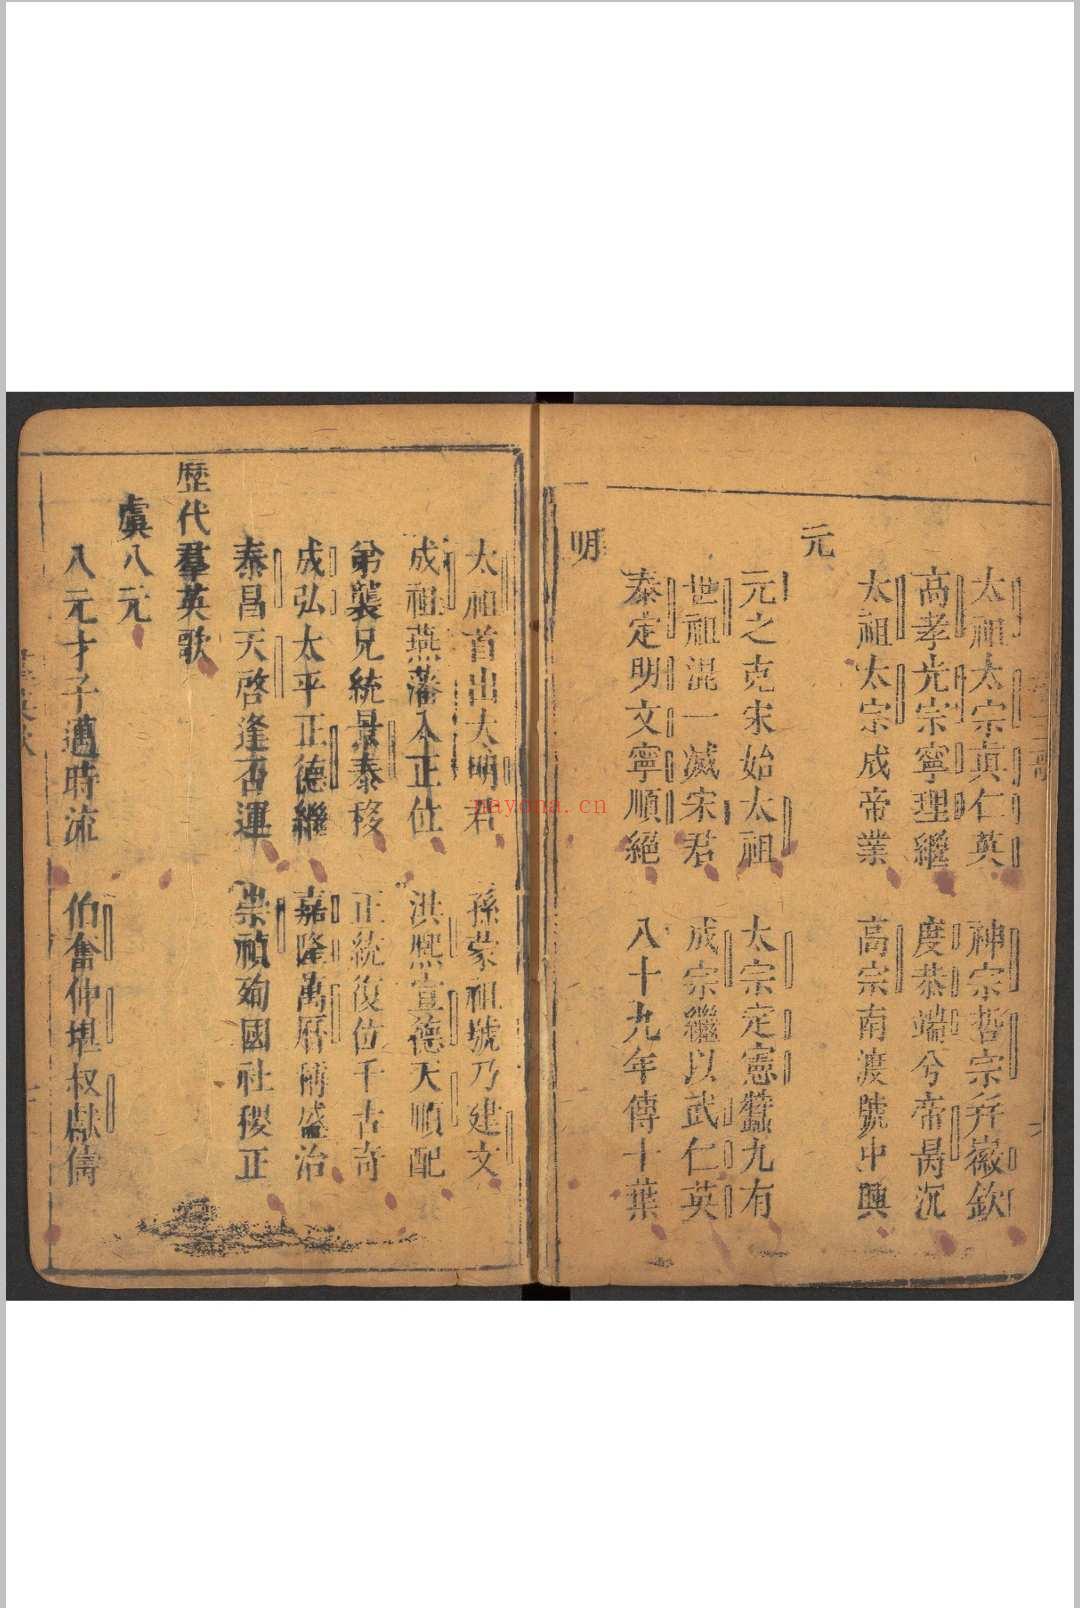 太祖太宗真仁英　神宗哲宗并徽欽
高孝光宗寧理繼　度恭端兮帝昺沉
太祖太宗成帝業　高宗南渡號中興
元
元之克宋始太祖　太宗定憲蠶九有
世祖混一滅宋君　成宗繼以武仁英
泰定明文寧順絕　八十九年傳十葉
明
太祖首出大明君　孫蒙祖號乃建文
成祖燕藩入正位　洪熙宣德天順配
弟襲兄統景泰移　正統復位千古奇
成弘太平正德繼　嘉隆萬曆稱盛治
泰昌天啓逢否運　崇禎殉國社稷正
歷代羣英歌
虞八元
八元才子邁時流　伯奮仲堪叔獻儔
nayona.cn